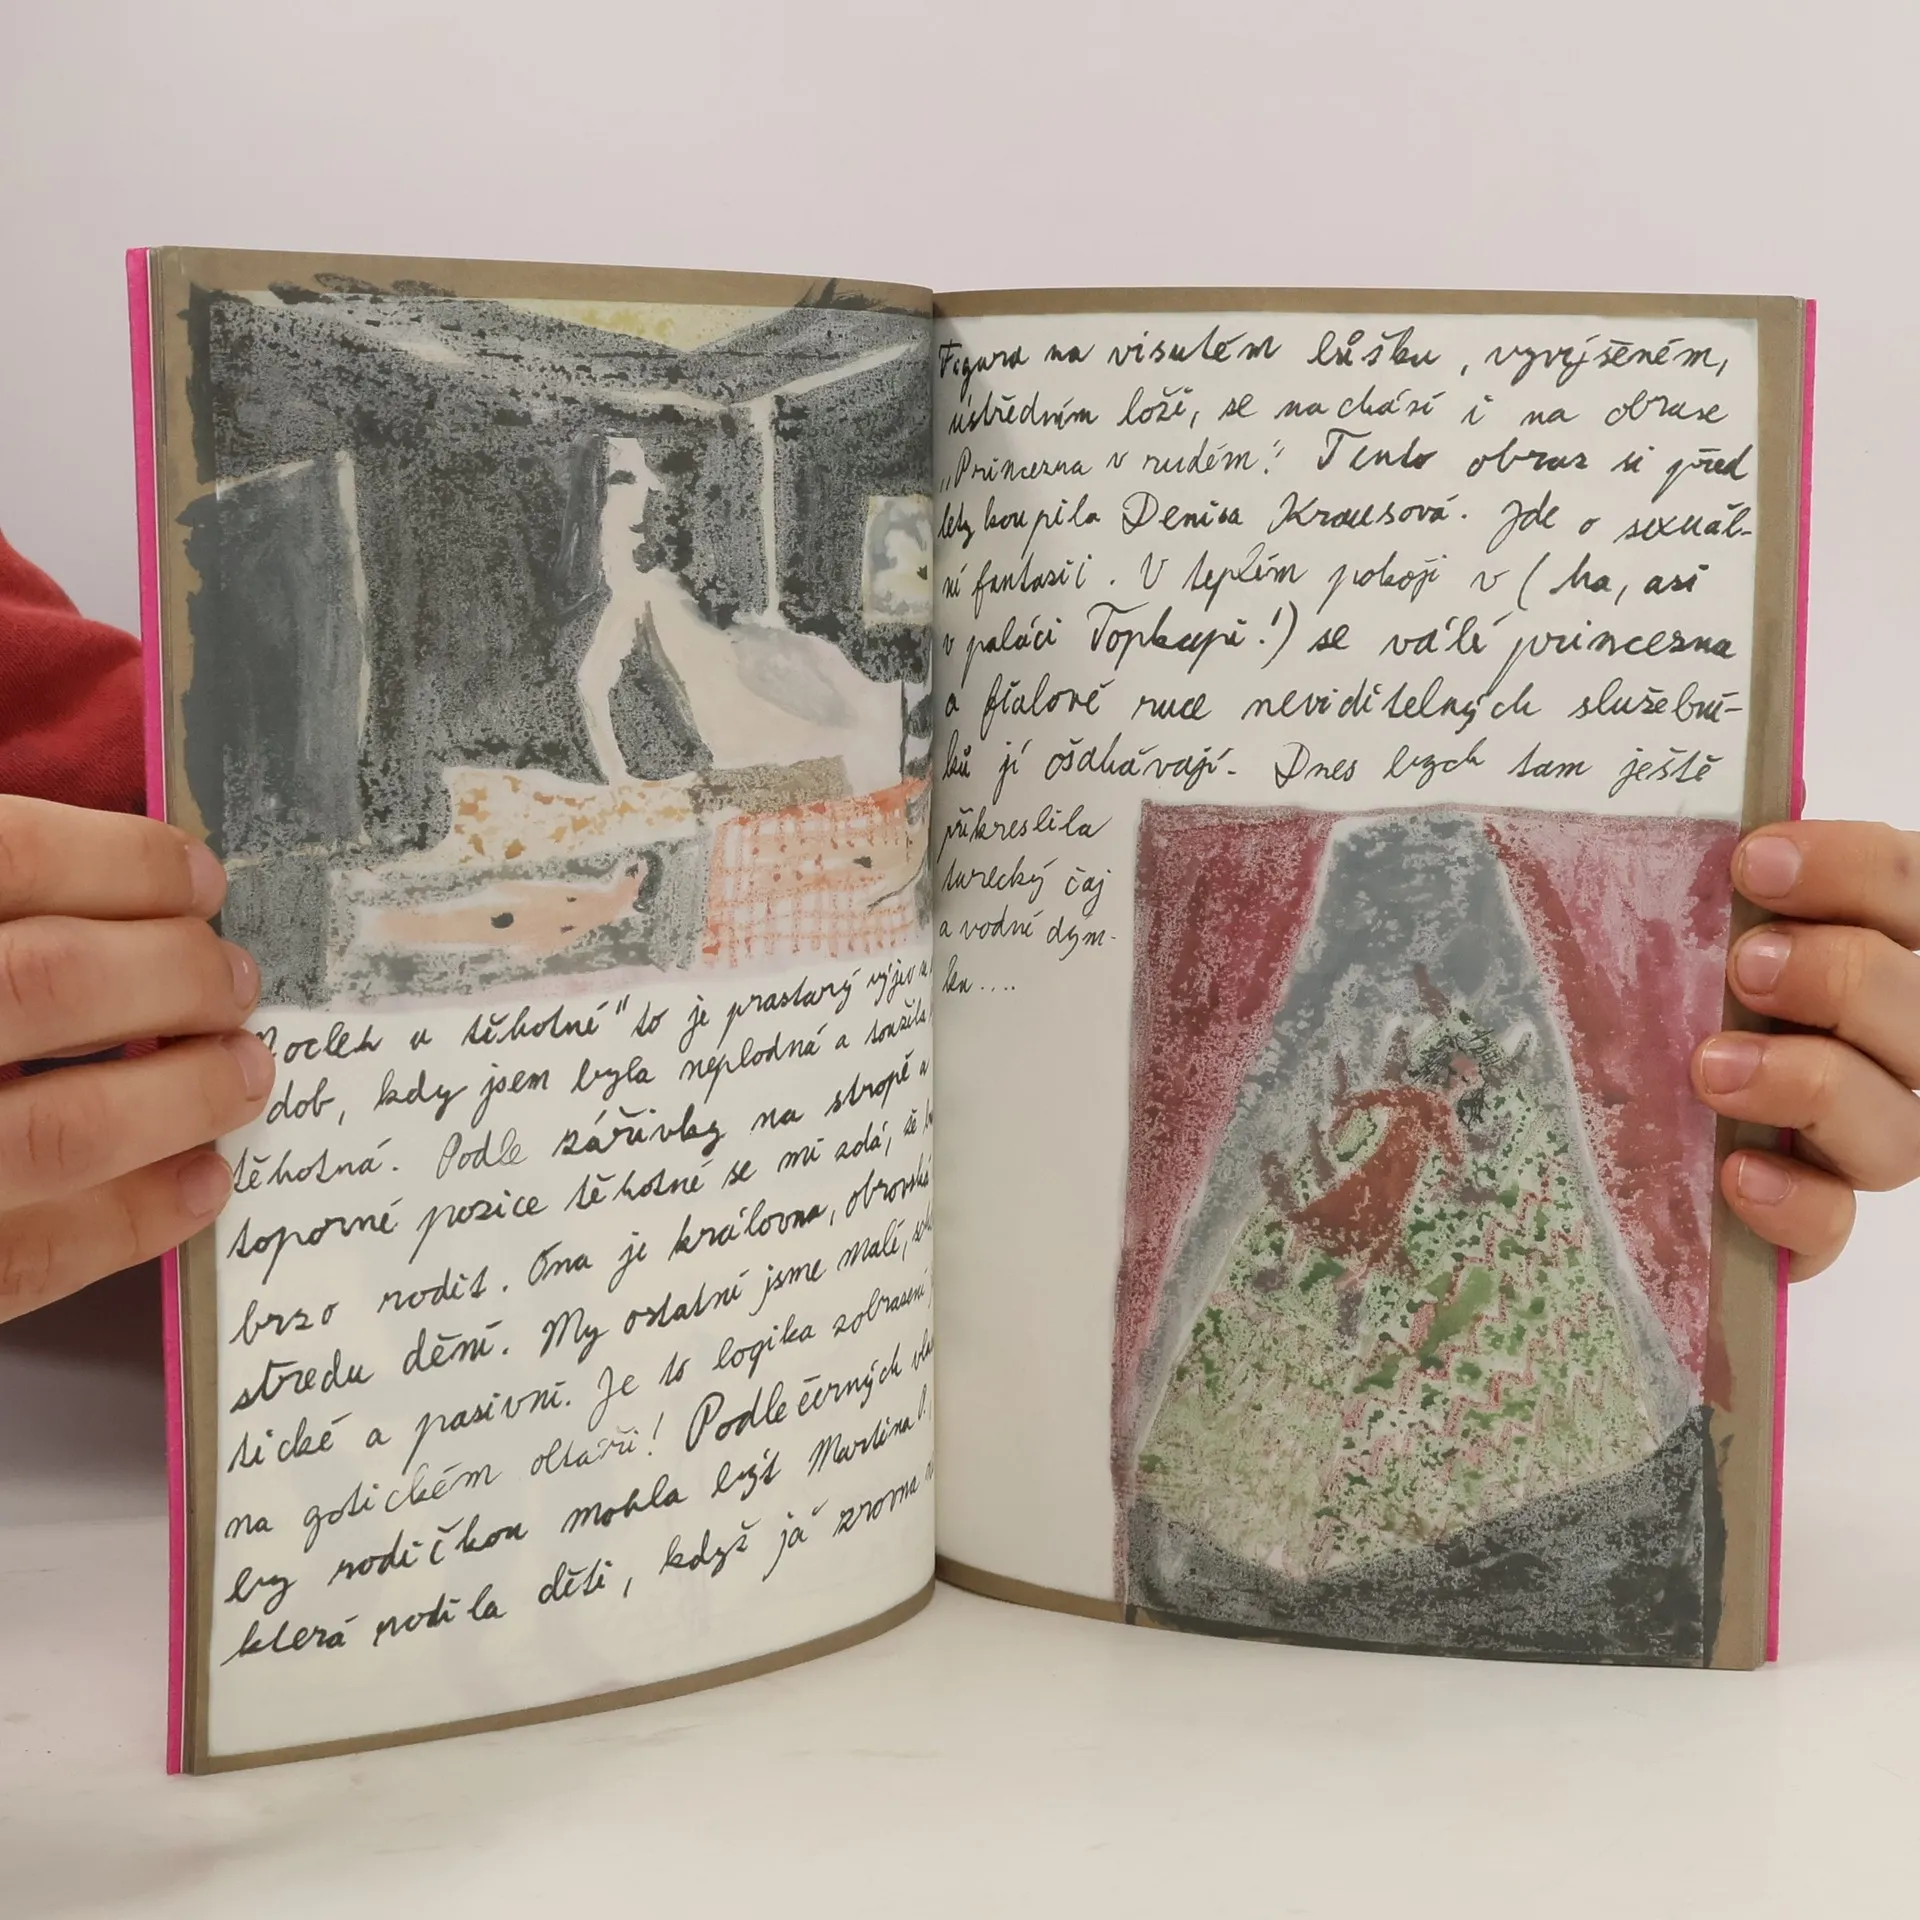 Nocleh u těhotné" to je prastarý výjev
dob, kdy jsem byla neplodná a toužila
těhotná. Podle zářivky na stropě a
toporné pozice těhotné se mi zdá, že
brzo rodit. Ona je královna, obrovská
středu dění. My ostatní jsme malí,
tické a pasivní. Je to logika zobrazení
na gotickém oltáři! Podle černých
by rodičkou mohla být Martina P.
která rodila děti, když já zrovna
Figura na visutém lůžku, vyvýšeném,
ústředním loži, se nachází i na obraze
„Princezna v rudém." Tento obraz si před
lety koupila Denisa Krausová. Jde o sexuál-
ní fantazii. V teplém pokoji v (ha, asi
v paláci Topkapi!) se válí princezna
a fialové ruce neviditelných služební-
ků jí ošahávají. Dnes bych tam ještě
přikreslila
turecký čaj
a vodní dým-
ku....